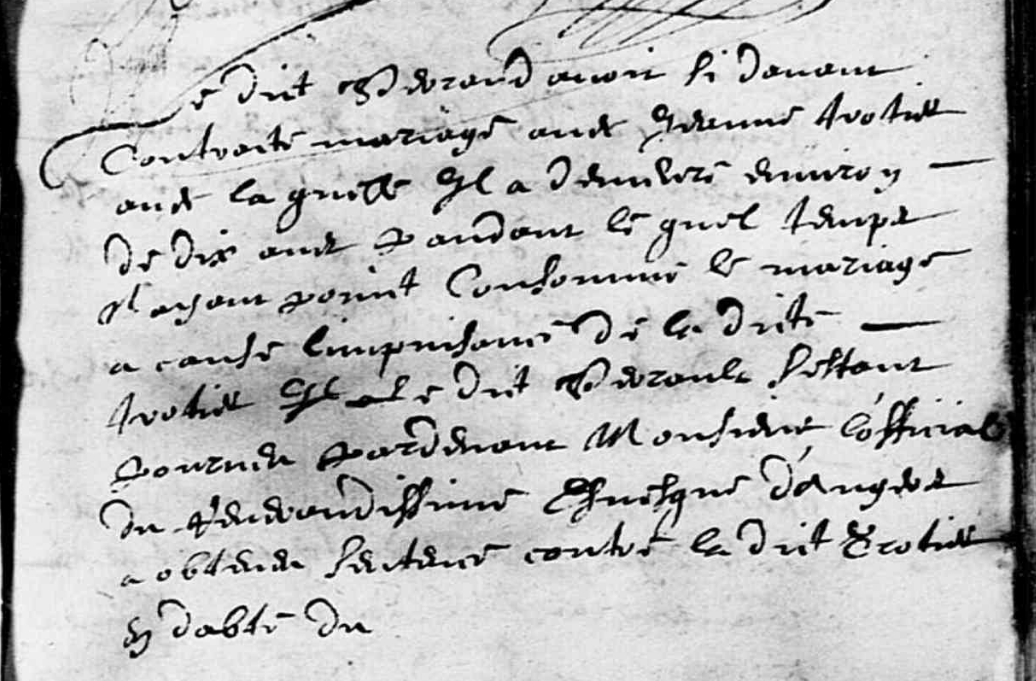 Le dit Gerard avoit si davant
Contracté mariage avec Jeanne trotier
avec laquelle Il a demeuré environ
de dix ans pandant lequel temps
N ayant point Consommé le mariage
a cause limpuisance de la dicte
trotier Il le dit sestant
pourveu pardevant Monsieur l'official
du Reverandissime Evesque d'Angers
a obtenu sentence contre la dict Trotier
en dabte du